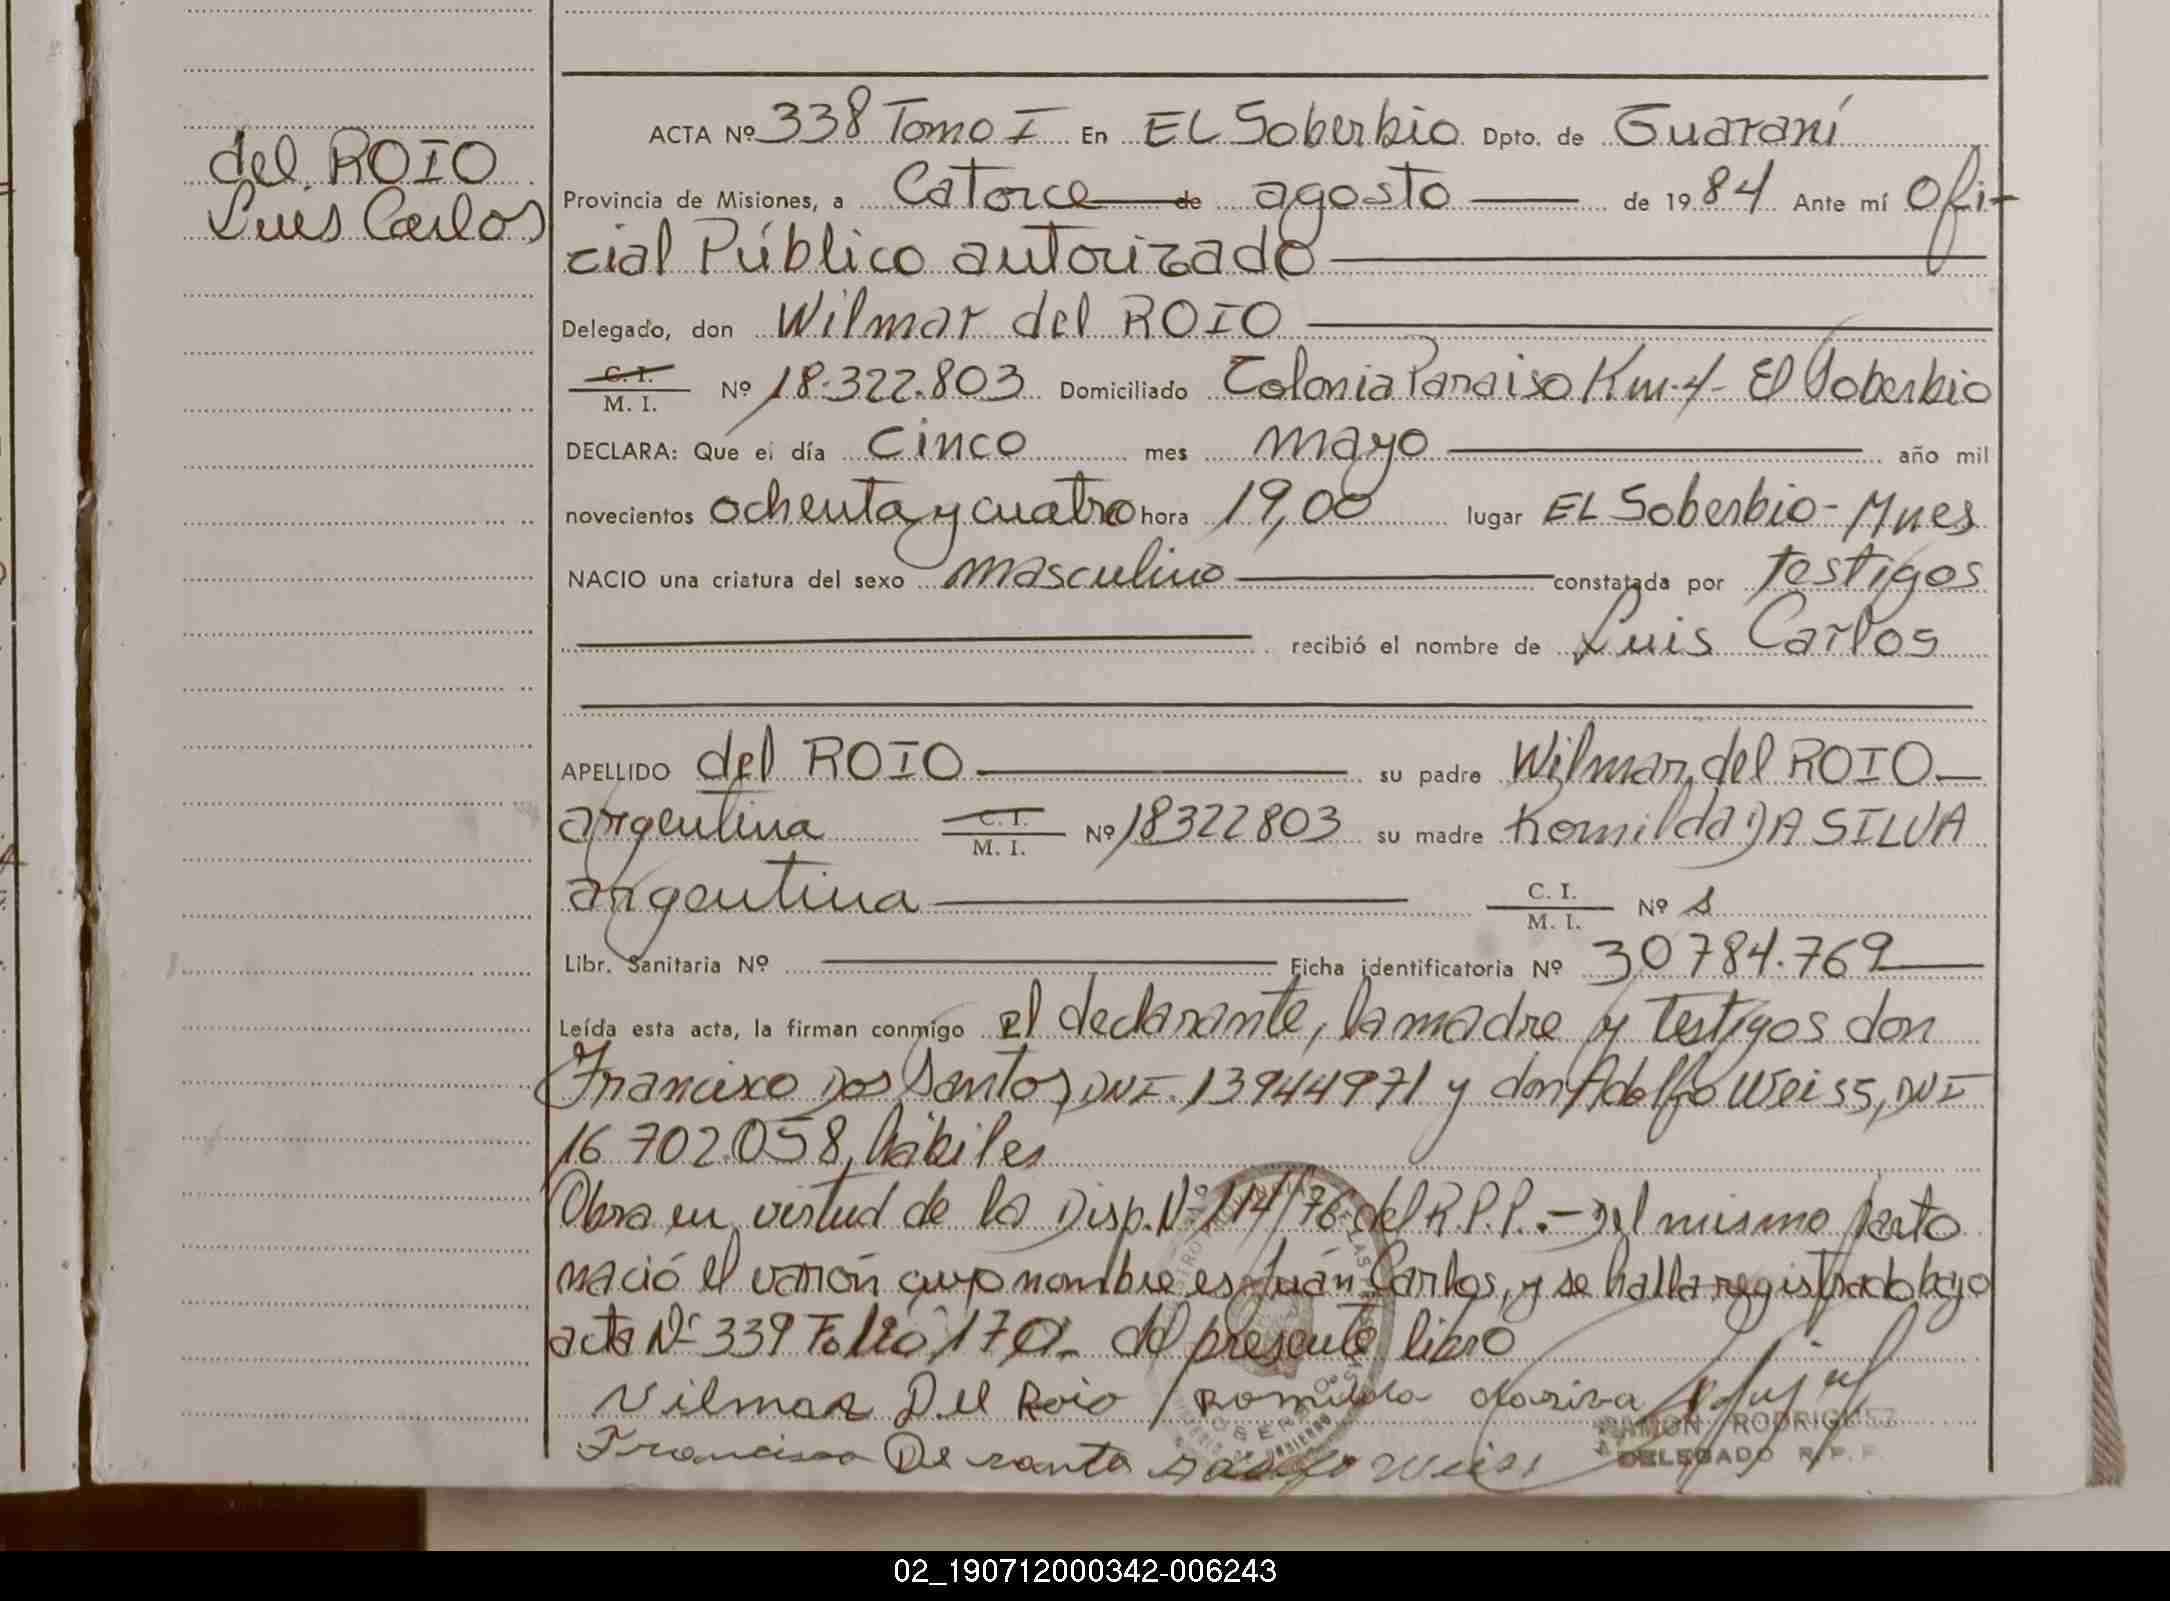 del ROIO
Luis Carlos
ACTA Nº 338 Tomo I En EL Soberbio Dpto. de Guaraní
Provincia de Misiones, a Catorce de agosto de 1984 Ante mí Ofi-
cial Público autorizado
Delegado, don Wilmar del ROIO
C. I.
M. I. Nº 18.322.803 Domiciliado Colonia Paraiso Km. 4 - El Soberbio
DECLARA: Que el día cinco mes mayo año mil
novecientos ochenta y cuatro hora 19,00 lugar EL Soberbio - Mnes
NACIO una criatura del sexo masculino constatada por testigos
recibió el nombre de Luis Carlos
APELLIDO del ROIO su padre Wilmar del ROIO
argentina C. I. M. I. Nº 18322803 su madre Romilda DA SILVA
argentina C. I. M. I. Nº
Libr. Sanitaria Nº Ficha identificatoria Nº 30784.769
Leída esta acta, la firman conmigo el declarante, la madre y testigos don
Francisco Dos Santos, DNI. 13944971 y don Adolfo Weiss, DNI
16 702.058, hábiles
Obra en virtud de la Disp. Nº 114/76 del R.P.P. .- Del mismo parto
nació el varón cuyo nombre es Juán Carlos, y se halla registrado bajo
acta Nº 339 Folio 170 del presente libro
Vilmar Del Roio Romilda dasiva
Francisco De santo Adolfo Weiss
RAMON RODRIGUEZ
DELEGADO R.P.P.
02_190712000342-006243